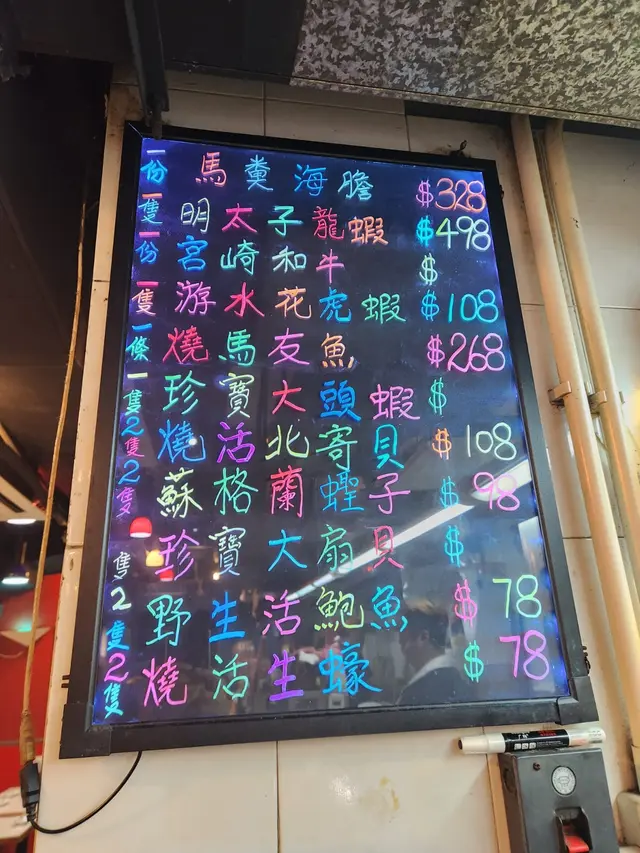 一份 馬糞海膽 $328
一隻 明太子龍蝦 $498
一份 宮崎和牛 $
一隻 游水花虎蝦 $108
一條 燒馬友魚 $268
一隻 珍寶大頭蝦 $
2隻 燒活北寄貝 $108
2隻 蘇格蘭蟶子 $98
隻 珍寶大扇貝 $
2隻 野生活鮑魚 $78
2隻 燒活生蠔 $78